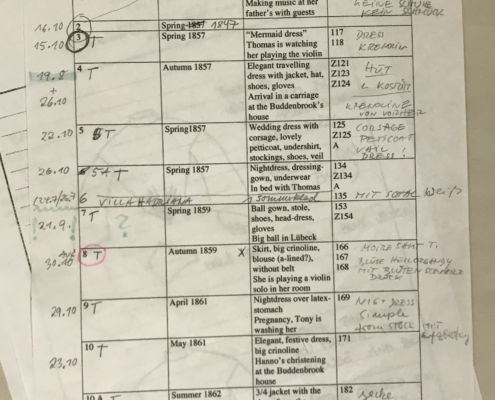 Making music at her
father's with guests
KEINE SCHUHE
KEIN SCHMUCK
16.10
2
Spring 1857 1847
15.10
3 T
Spring 1857
"Mermaid dress"
Thomas is watching
her playing the violin
117
118
DRESS
19.8
+
26.10
4 T
Autumn 1857
Elegant travelling
dress with jacket, hat,
shoes, gloves
Arrival in a carriage
at the Buddenbrook's
house
Z121
Z123
Z124
HUT
KOSTÜM
22.10
5 T
Spring1857
Wedding dress with
corsage, lovely
petticoat, undershirt,
stockings, shoes, veil
125
Z125
A
CORSAGE
PETICOAT
DRESS!
26.10
5A T
Spring 1857
Nightdress, dressing-
gown, underwear
In bed with Thomas
134
Z134
A
6
135
MIT
21.9.
?
7 T
Spring 1859
Ball gown, stole,
shoes, head-dress,
gloves
Big ball in Lübeck
153
Z154
30.10
8 T
Autumn 1859
X
Skirt, big crinoline,
blouse (a-lined?),
without belt
She is playing a violin
solo in her room
166
167
168
T.
MIT BLÜTEN
29.10
9 T
April 1861
Nightdress over latex-
stomach
Pregnancy, Tony is
washing her
169
simple
23.10
10 T
May 1861
Elegant, festive dress,
big crinoline
Hanno's christening
at the Buddenbrook
house
171
10 A T
Summer 1862
3/4 jacket with the
182